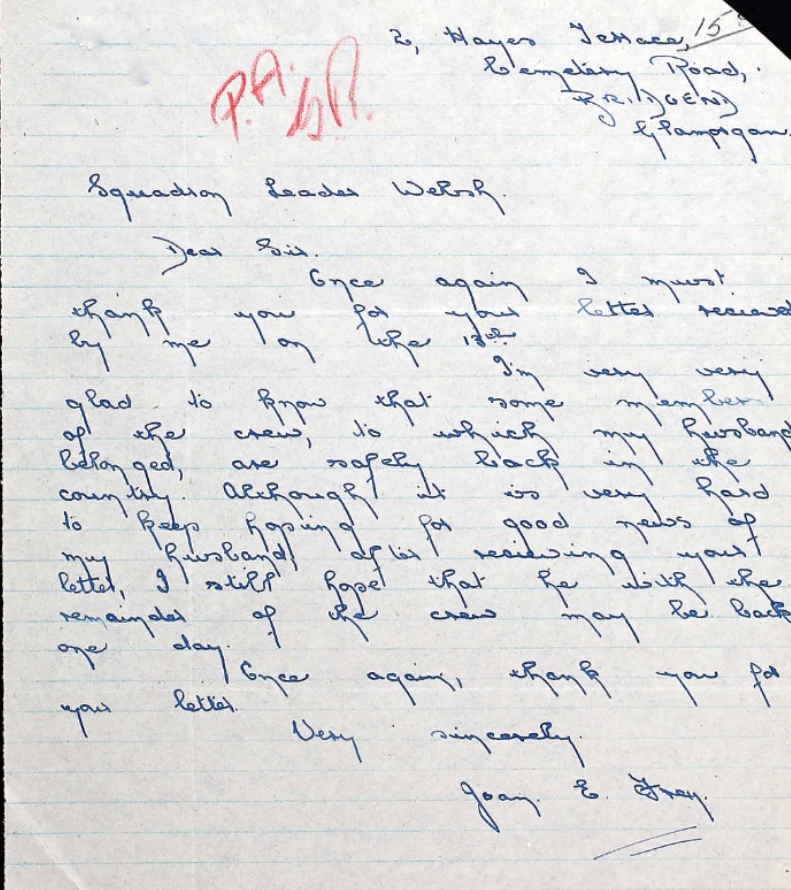 15
2, Hayes Terrace,
Cemetery Road,
BRIDGEND
Glamorgan.
P.A.
Squadron Leader Welsh.
Dear Sir.
Once again I must
thank you for your letter recieved
by me on the 13th.
I'm very very
glad to know that some members
of the crew, to which my husband
belonged, are safely back in the
country. Although it is very hard
to keep hoping for good news of
my husband, after recieving your
letter, I still hope that he with the
remainder of the crew may be back
one day.
Once again, thank you for
your letter.
Very sincerely.
Joan. E.